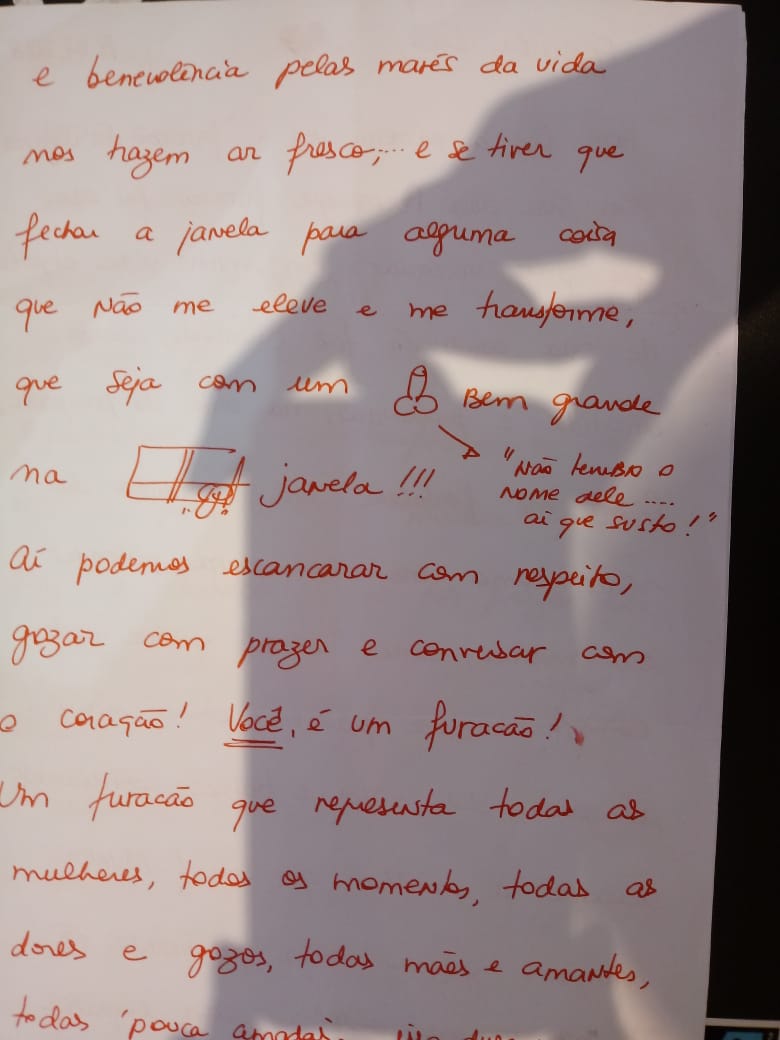 e benevolência pelas marés da vida
nos trazem ar fresco,.... e se tiver que
fechar a janela para alguma coisa
que não me eleve e me transforme,
que seja com um Bem grande
na janela!!!
"não lembro o
nome dele ....
ai que susto!"
Aí podemos escancarar com respeito,
gozar com prazer e conversar com
o coração! Você, é um furacão!
Um furacão que representa todas as
mulheres, todos os momentos, todas as
dores e gozos, todas mães e amantes,
todas 'pouca amadas,